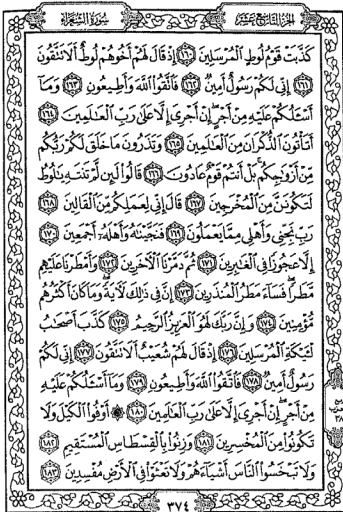 سُورَةُ الشُّعَرَاءِ
الجُزْءُ التَّاسِعَ عَشَرَ
كَذَّبَتْ قَوْمُ لُوطٍ الْمُرْسَلِينَ ١٦٠ إِذْ قَالَ لَهُمْ أَخُوهُمْ لُوطٌ أَلَا تَتَّقُونَ
١٦١ إِنِّي لَكُمْ رَسُولٌ أَمِينٌ ١٦٢ فَاتَّقُوا اللَّهَ وَأَطِيعُونِ ١٦٣ وَمَا
أَسْـَٔلُكُمْ عَلَيْهِ مِنْ أَجْرٍ إِنْ أَجْرِيَ إِلَّا عَلَىٰ رَبِّ الْعَـٰلَمِينَ ١٦٤
أَتَأْتُونَ الذُّكْرَانَ مِنَ الْعَـٰلَمِينَ ١٦٥ وَتَذَرُونَ مَا خَلَقَ لَكُمْ رَبُّكُم
مِّنْ أَزْوَٰجِكُم بَلْ أَنتُمْ قَوْمٌ عَادُونَ ١٦٦ قَالُوا لَئِن لَّمْ تَنتَهِ يَـٰلُوطُ
لَتَكُونَنَّ مِنَ الْمُخْرَجِينَ ١٦٧ قَالَ إِنِّي لِعَمَلِكُم مِّنَ الْقَالِينَ ١٦٨
رَبِّ نَجِّنِي وَأَهْلِي مِمَّا يَعْمَلُونَ ١٦٩ فَنَجَّيْنَـٰهُ وَأَهْلَهُ أَجْمَعِينَ ١٧٠
إِلَّا عَجُوزًا فِي الْغَـٰبِرِينَ ١٧١ ثُمَّ دَمَّرْنَا الْآخَرِينَ ١٧٢ وَأَمْطَرْنَا عَلَيْهِم
مَّطَرًا فَسَاءَ مَطَرُ الْمُنذَرِينَ ١٧٣ إِنَّ فِي ذَٰلِكَ لَآيَةً وَمَا كَانَ أَكْثَرُهُم
مُّؤْمِنِينَ ١٧٤ وَإِنَّ رَبَّكَ لَهُوَ الْعَزِيزُ الرَّحِيمُ ١٧٥ كَذَّبَ أَصْحَـٰبُ
لْـَٔيْكَةِ الْمُرْسَلِينَ ١٧٦ إِذْ قَالَ لَهُمْ شُعَيْبٌ أَلَا تَتَّقُونَ ١٧٧ إِنِّي لَكُمْ
رَسُولٌ أَمِينٌ ١٧٨ فَاتَّقُوا اللَّهَ وَأَطِيعُونِ ١٧٩ وَمَا أَسْـَٔلُكُمْ عَلَيْهِ
مِنْ أَجْرٍ إِنْ أَجْرِيَ إِلَّا عَلَىٰ رَبِّ الْعَـٰلَمِينَ ١٨٠ ۞ أَوْفُوا الْكَيْلَ وَلَا
تَكُونُوا مِنَ الْمُخْسِرِينَ ١٨١ وَزِنُوا بِالْقِسْطَاسِ الْمُسْتَقِيمِ ١٨٢
وَلَا تَبْخَسُوا النَّاسَ أَشْيَاءَهُمْ وَلَا تَعْثَوْا فِي الْأَرْضِ مُفْسِدِينَ ١٨٣
٣٧٤